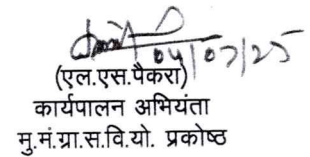 04/07/25
(एल.एस.पैकरा)
कार्यपालन अभियंता
मु.मं.ग्रा.स.वि.यो. प्रकोष्ठ